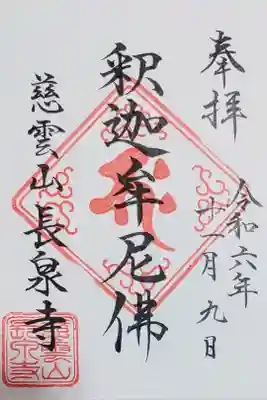 奉拝
令和六年
十一月九日
釈迦牟尼佛
慈雲山長泉寺